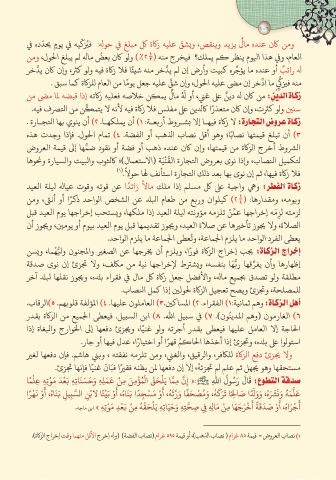 ومن كان عنده مالٌ يزيد وينقص، ويشق عليه زكاة كل مبلغ في حوله: فيُزكّيه في يوم يحدّده في
العام، وفي هذا اليوم ينظر كم يملك؟ فيخرج منه (٢٫٥٪) ولو كان بعض ماله لم يبلغ الحول، ومن
له راتبٌ أو عنده ما يؤجّره كبيت وأرض إن لم يدّخر منه شيئًا فلا زكاة فيه ولو كثر، وإن كان يدّخر
منه فيزكّي ما ادّخر إن مضى عليه الحول، وإن شقَّ عليه جعل يومًا من العام للزكاة كما سبق.
زكاة الدين: من كان له دينٌ على غني، أو له مالٌ يمكن خلاصه فعليه زكاته إذا قبضه لما مضى من
سنين ولو كثرت، وإن كان متعذرًا كالدين على مفلس فلا زكاة فيه لأنه لا يتمكن من التصرف فيه.
زكاة عروض التجارة: لا زكاة فيها إلا بشروط أربعة: ١) أن يملكها. ٢) أن ينوي بها التجارة.
٣) أن تبلغ قيمتها نصابًا؛ وهو أقل نصاب الذهب أو الفضة. ٤) تمام الحول. فإذا وجدت هذه
الشروط أخرج الزكاة من قيمتها، وإن كان عنده ذهب أو فضة أو نقود ضمّها إلى قيمة العروض
لتكميل النصاب، وإذا نوى بعروض التجارة القُنْيَة (الاستعمال)؛ كالثوب والبيت والسيارة ونحوها
فلا زكاة فيها؛ ثم إن نوى بها بعد ذلك التجارة استأنف لها حولًا(١).
زكاة الفطر: وهي واجبة على كل مسلم إذا ملك مالًا زائدًا عن قوته وقوت عياله ليلة العيد
ويومه، ومقدارها: (٢٫٢٥) كيلوان وربع من طعام البلد عن الشخص الواحد ذكرًا أو أنثى، ومن
لزمته لزِمَه إخراجها عمَّن تلزمه مؤونته ليلة العيد إذا ملكها، ويستحب إخراجها يوم العيد قبل
الصلاة، ولا يجوز تأخيرها عن صلاة العيد، ويجوز تقديمها قبل يوم العيد بيوم أو يومين، ويجوز أن
يعطى الفرد الواحد ما يلزم الجماعة، وتُعطى الجماعة ما يلزم الواحد.
إخراج الزكاة: يجب إخراج الزكاة فورًا، ويلزم أن يخرجها عن الصغير والمجنون وليُّهما، ويسن
إظهارها وأن يفرِّقها ربُّها بنفسه، ويشترط لإخراجها نية من مكلف، ولا تجزئ إن نوى صدقة
مطلقة ولو تصدق بجميع ماله، والأفضل جعل زكاة كل مال في فقراء بلده، ويجوز نقلها لبلد آخر
للمصلحة، وتجزئ ويصح تعجيل الزكاة لحولين إذا كمل النصاب.
أهل الزكاة: وهم ثمانية: ١) الفقراء. ٢) المساكين. ٣) العاملون عليها. ٤) المؤلفة قلوبهم. ٥) الرقاب.
٦) الغارمون (وهم المَدِينُون). ٧) في سبيل الله. ٨) ابن السبيل. فيعطى الجميع من الزكاة بقدر
الحاجة إلا العامل عليها فيعطى بقدر أجرته ولو غنيًا، ويجزئ دفعها إلى الخوارج والبغاة إذا
استولوا على بلده، وتجزئ إذا أخذها الحاكم قهرًا أو اختيارًا، عدل فيها أو جار.
ولا يجزئ دفع الزكاة للكافر، والرقيق، والغني، ومن تلزمه نفقته، وبني هاشم. فإن دفعها لغير
مستحقها وهو يجهل ثم علم لم تجزئه، إلا إن دفعها لمن يظنه فقيرًا فبان غنيًا فإنها تجزئ.
صدقة التطوع: قال رسول الله ﷺ: (إِنَّ مِمَّا يَلْحَقُ الْمُؤْمِنَ مِنْ عَمَلِهِ وَحَسَنَاتِهِ بَعْدَ مَوْتِهِ عِلْمًا
عَلَّمَهُ وَنَشَرَهُ، وَوَلَدًا صَالِحًا تَرَكَهُ، وَمُصْحَفًا وَرَّثَهُ، أَوْ مَسْجِدًا بَنَاهُ، أَوْ بَيْتًا لابْنِ السَّبِيلِ بَنَاهُ، أَوْ نَهْرًا
أَجْرَاهُ، أَوْ صَدَقَةً أَخْرَجَهَا مِنْ مَالِهِ فِي صِحَّتِهِ وَحَيَاتِهِ يَلْحَقُهُ مِنْ بَعْدِ مَوْتِهِ) ابن ماجه.
(١) نصاب العروض = قيمة ٨٥ غرام (نصاب الذهب)، أو قيمة ٥٩٥ غرام (نصاب الفضة) (وأنه إخراج الأقل منهما وقت إخراج الزكاة).